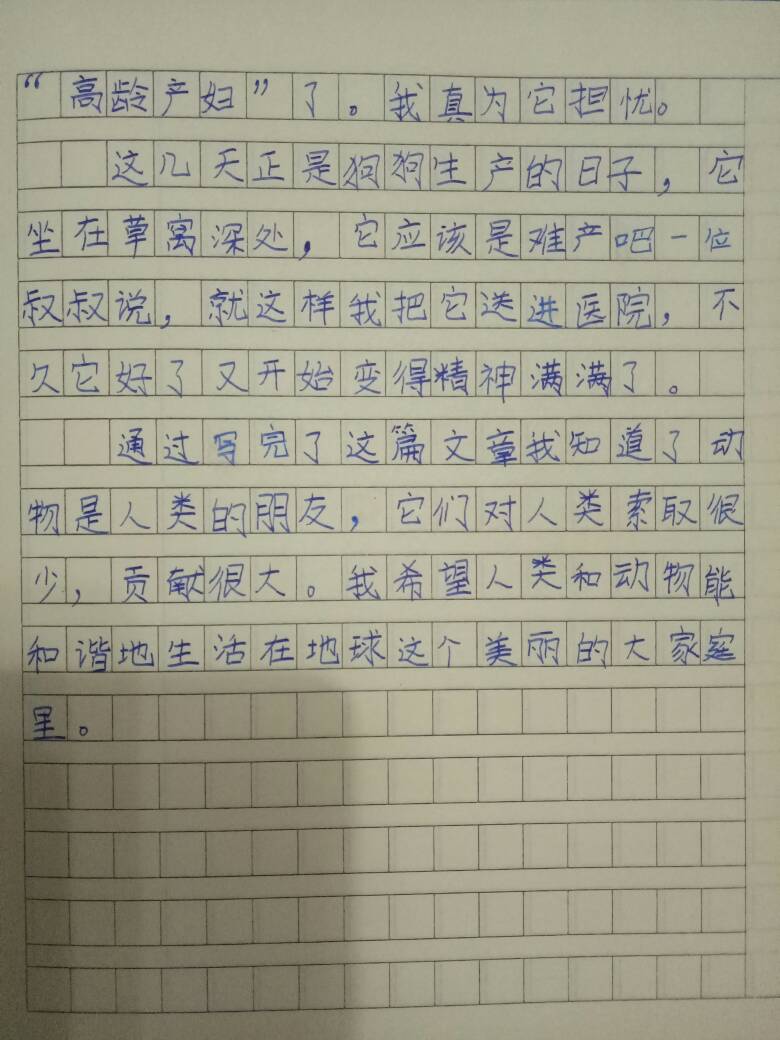 “高龄产妇”了。我真为它担忧。
这几天正是狗狗生产的日子，它
坐在草窝深处，它应该是难产吧一位
叔叔说，就这样我把它送进医院，不
久它好了又开始变得精神满满了。
通过写完了这篇文章我知道了动
物是人类的朋友，它们对人类索取很
少，贡献很大。我希望人类和动物能
和谐地生活在地球这个美丽的大家庭
里。